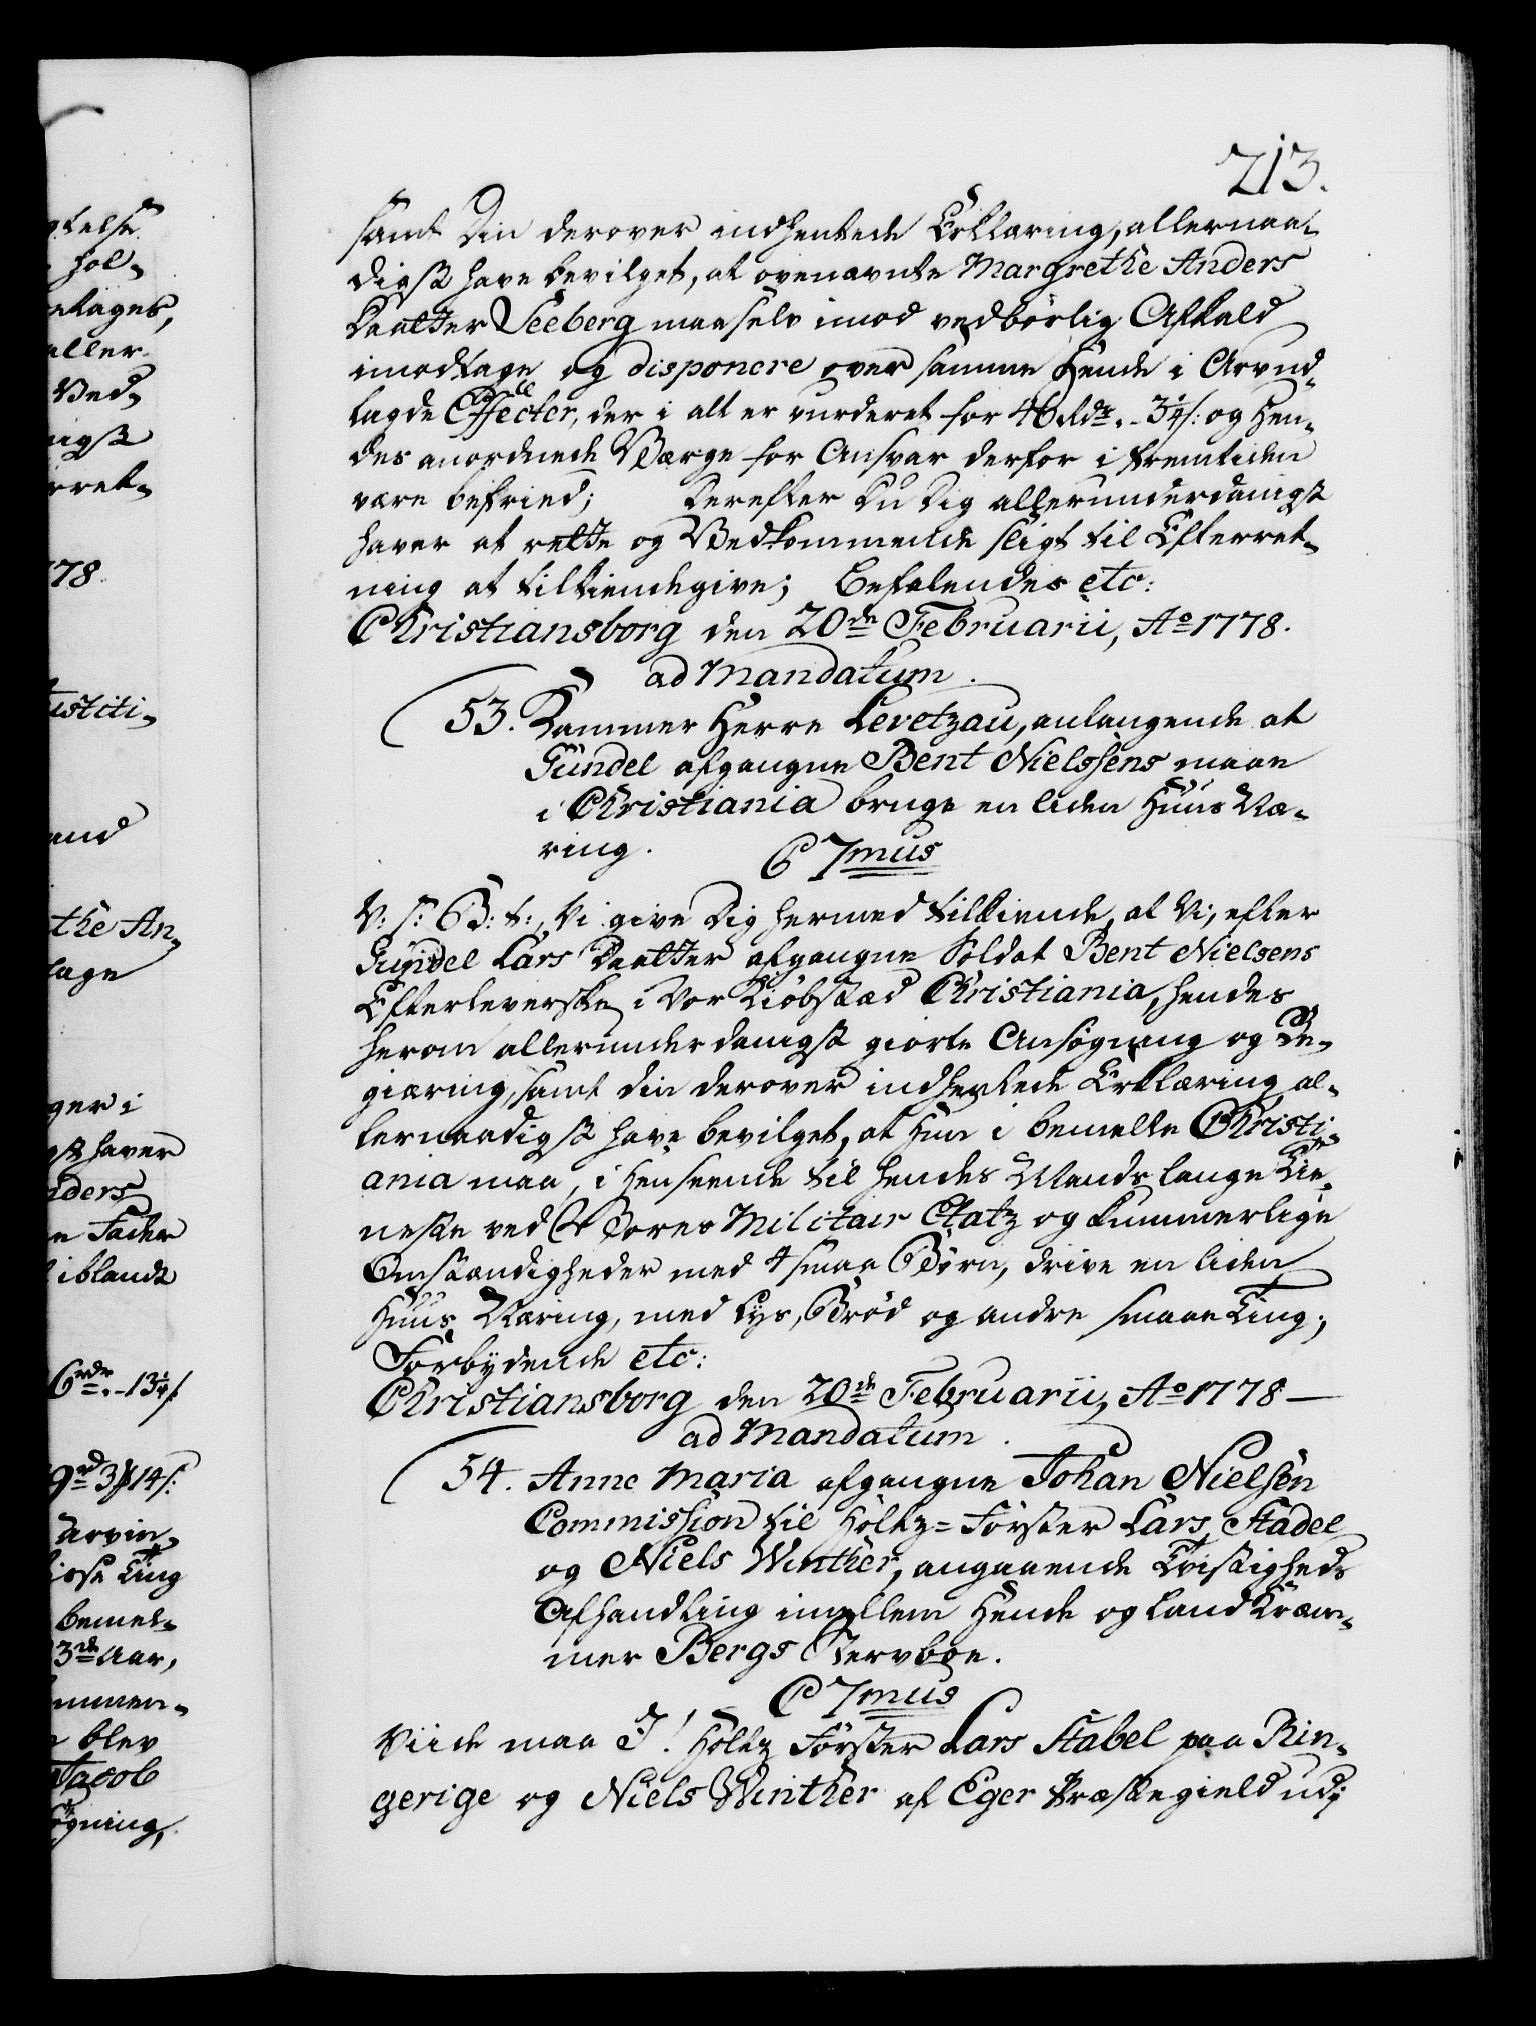 213.
samt Din derover indhentede Erklæring, allernaa-
digst have bevilget, at ovennævnte Margrethe Anders
Daatter Seeberg maa selv imod vedbörlig Afkald
imodtage og disponere over samme Hende i Arv ud-
lagde Effecter, der i alt er vurderet for 46 rdr. - 3¼ s: og Hen-
des anordnede Værge for Ansvar derfor i fremtiden
være befried; Derefter Du Dig allerunderdanigst
haver at rette og Vedkommende sligt til Efterret-
ning at tilkiendegive; Befalendes etc:
Christiansborg den 20de Februarii, Ao 1778.
ad Mandatum.
53. Kammer Herre Levetzau, anlangende at
Gundel afgangne Bent Nielssens maae
i Christiania bruge en liden Huus Næ-
ring.
C 7mus
V: S: G: t:, Vi give Dig hermed tilkiende, at Vi, efter
Gundel Lars Daatter afgangne Soldat Bent Nielsens
Efterleverske i Vor Kiöbstæd Christiania, hendes
herom allerunderdanigst giorte Ansögning og Be-
giæring, samt din derover indhentede Erklæring al-
lernaadigst have bevilget, at Hun i bemelte Christi-
ania maa, i Henseende til hendes Mands lange Tie-
neste ved Vores Militair Etatz og kummerlige
Omstændigheder med 4 smaa Börn, drive en liden
Huus Næring, med Lys, Bröd og andre smaae Ting;
Forbydende etc:
Christiansborg den 20de Februarii, Ao 1778 —
ad Mandatum.
54. Anne Maria afgangne Johan Nielsen
Commission til Holtz-Förster Lars Stabel
og Niels Winther, angaaende Tvistigheds
Afhandling imellem Hende og Land Kræm-
mer Bergs Stervboe.
C 7mus
Viide maa I! Holtz Förster Lars Stabel paa Rin-
gerige og Niels Winther af Eger Præstegield udi